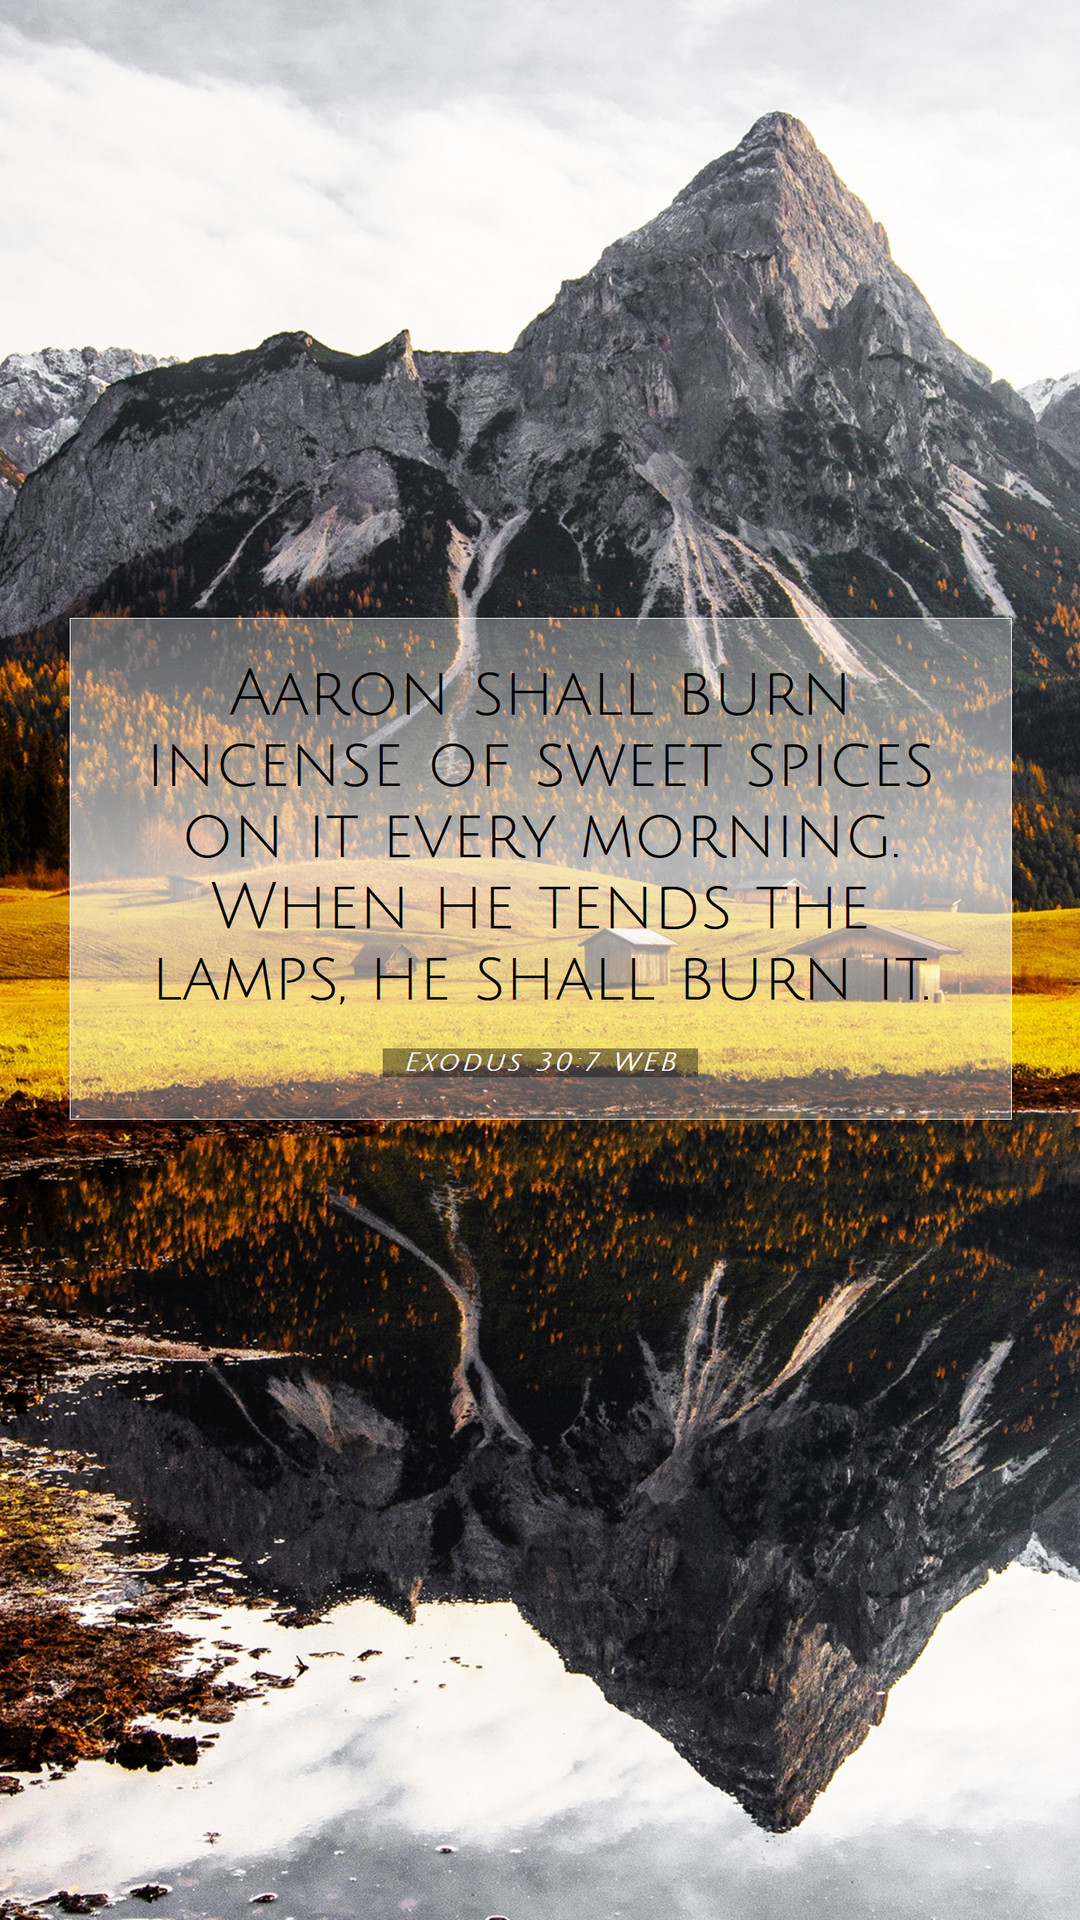 Aaron shall burn
incense of sweet spices
on it every morning.
When he tends the
lamps, he shall burn it.
Exodus 30:7 WEB